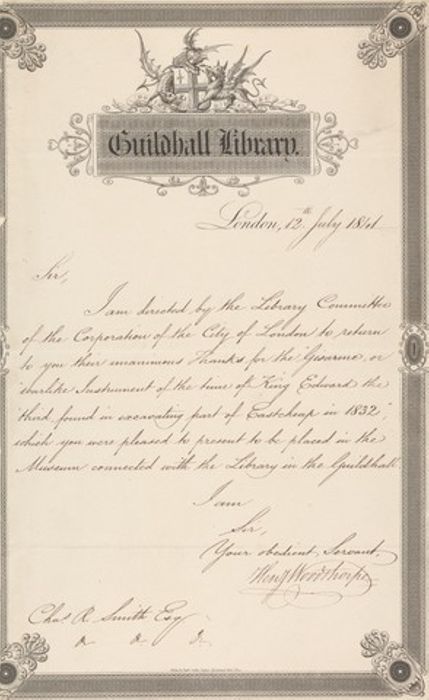 Guildhall Library.
London, 12th July 1841
Sir,
I am directed by the Library Committee
of the Corporation of the City of London to return
to you their unanimous Thanks for the Gisarme, or
warlike Instrument of the time of King Edward the
third, found in excavating part of Eastcheap in 1832,
which you were pleased to present to be placed in the
Museum connected with the Library in the Guildhall
I am
Sir,
Your obedient Servant,
Heny Woodthorpe
Chas R. Smith Esq
&c &c &c